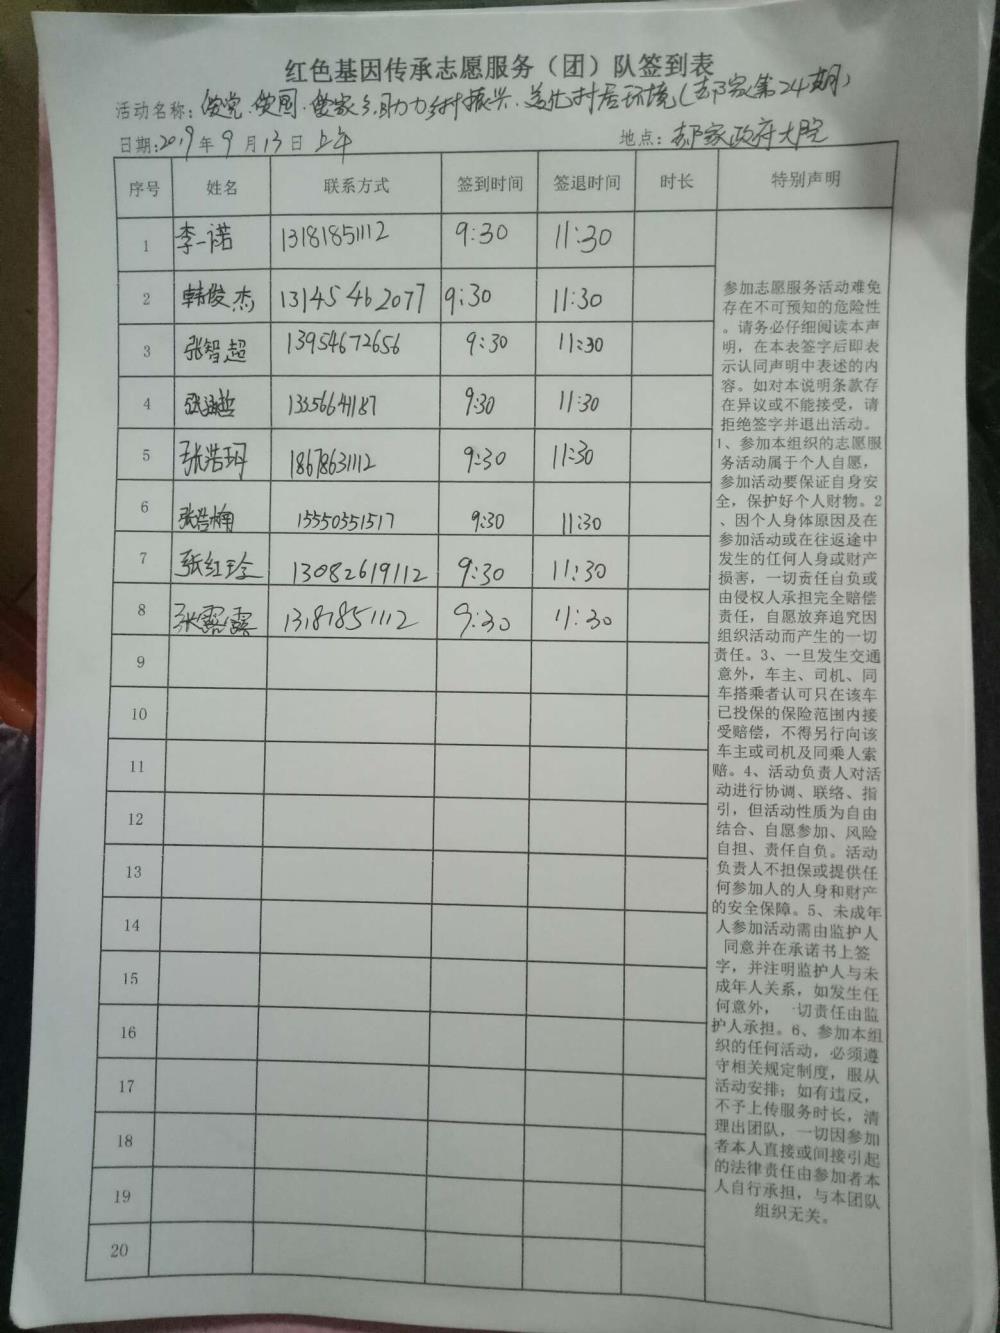 红色基因传承志愿服务（团）队签到表
活动名称：爱党·爱国·爱家乡，助力乡村振兴·美化村居环境（郝家第24期）
日期：2019年9月13日 上午 地点：郝家政府大院
序号 姓名 联系方式 签到时间 签退时间 时长 特别声明
1 李一诺 13181851112 9:30 11:30
2 韩俊杰 13145462077 9:30 11:30
3 张智超 13954672656 9:30 11:30
4 13356641187 9:30 11:30
5 张浩玥 18678631112 9:30 11:30
6 张浩楠 15550551517 9:30 11:30
7 张红玲 13082619112 9:30 11:30
8 张露露 13181851112 9:30 11:30
9
10
11
12
13
14
15
16
17
18
19
20
参加志愿服务活动难免
存在不可预知的危险性
。请务必仔细阅读本声
明，在本表签字后即表
示认同声明中表述的内
容。如对本说明条款存
在异议或不能接受，请
拒绝签字并退出活动。
1、参加本组织的志愿服
务活动属于个人自愿，
参加活动要保证自身安
全，保护好个人财物。2
、因个人身体原因及在
参加活动或在往返途中
发生的任何人身或财产
损害，一切责任自负或
由侵权人承担完全赔偿
责任，自愿放弃追究因
组织活动而产生的一切
责任。3、一旦发生交通
意外，车主、司机、同
车搭乘者认可只在该车
已投保的保险范围内接
受赔偿，不得另行向该
车主或司机及同乘人索
赔。4、活动负责人对活
动进行协调、联络、指
引，但活动性质为自由
结合、自愿参加、风险
自担、责任自负。活动
负责人不担保或提供任
何参加人的人身和财产
的安全保障。5、未成年
人参加活动需由监护人
同意并在承诺书上签
字，并注明监护人与未
成年人关系，如发生任
何意外，一切责任由监
护人承担。6、参加本组
织的任何活动，必须遵
守相关规定制度，服从
活动安排；如有违反，
不予上传服务时长，清
理出团队，一切因参加
者本人直接或间接引起
的法律责任由参加者本
人自行承担，与本团队
组织无关。